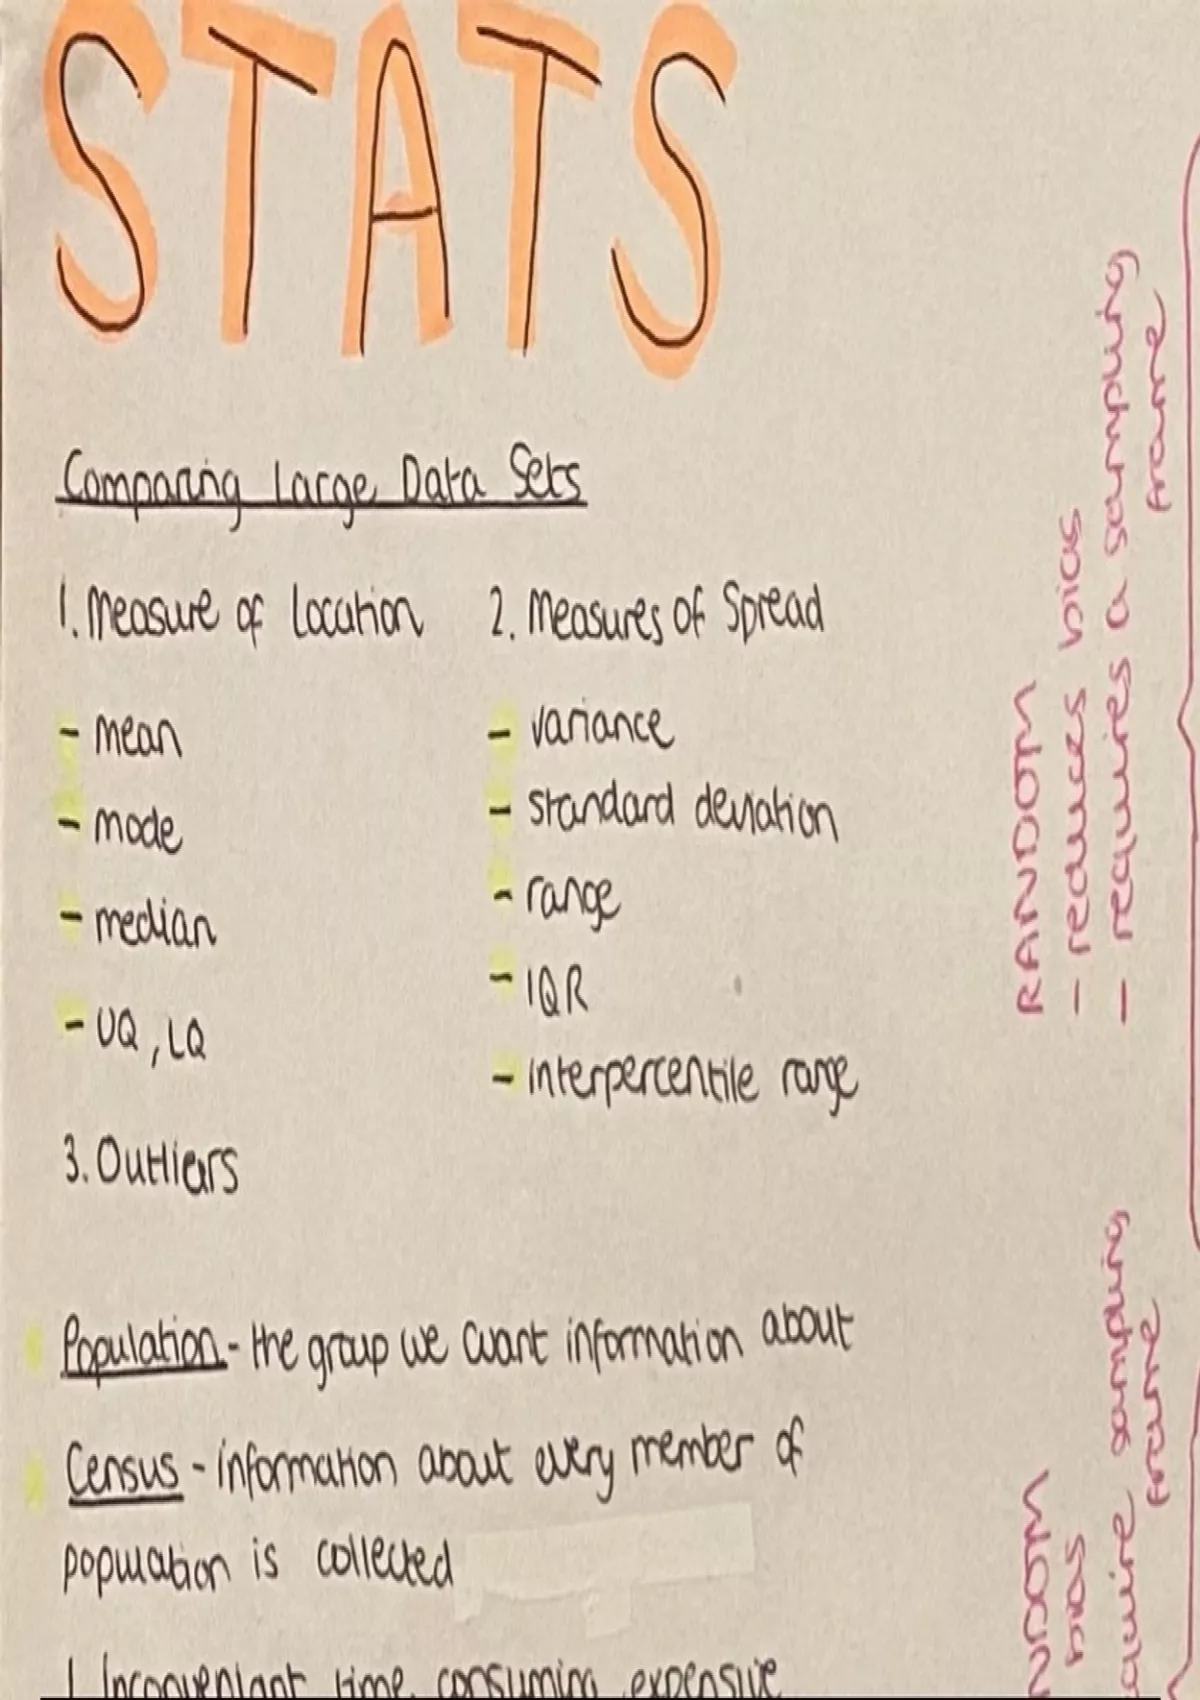 STATS
Comparing Large Data Sets
1. Measure of Location
- mean
- mode
- median
- UQ, LQ
2. Measures of Spread
- variance
- standard deviation
- range
- IQR
- interpercentile range
3. Outliers
Population - the group we want information about
Census - information about every member of
population is collected
Inconvenient time consuming expensive
RANDOM
- reduces bias
- requires a sampling
frame
NDOM
bias
quire sampling
frame